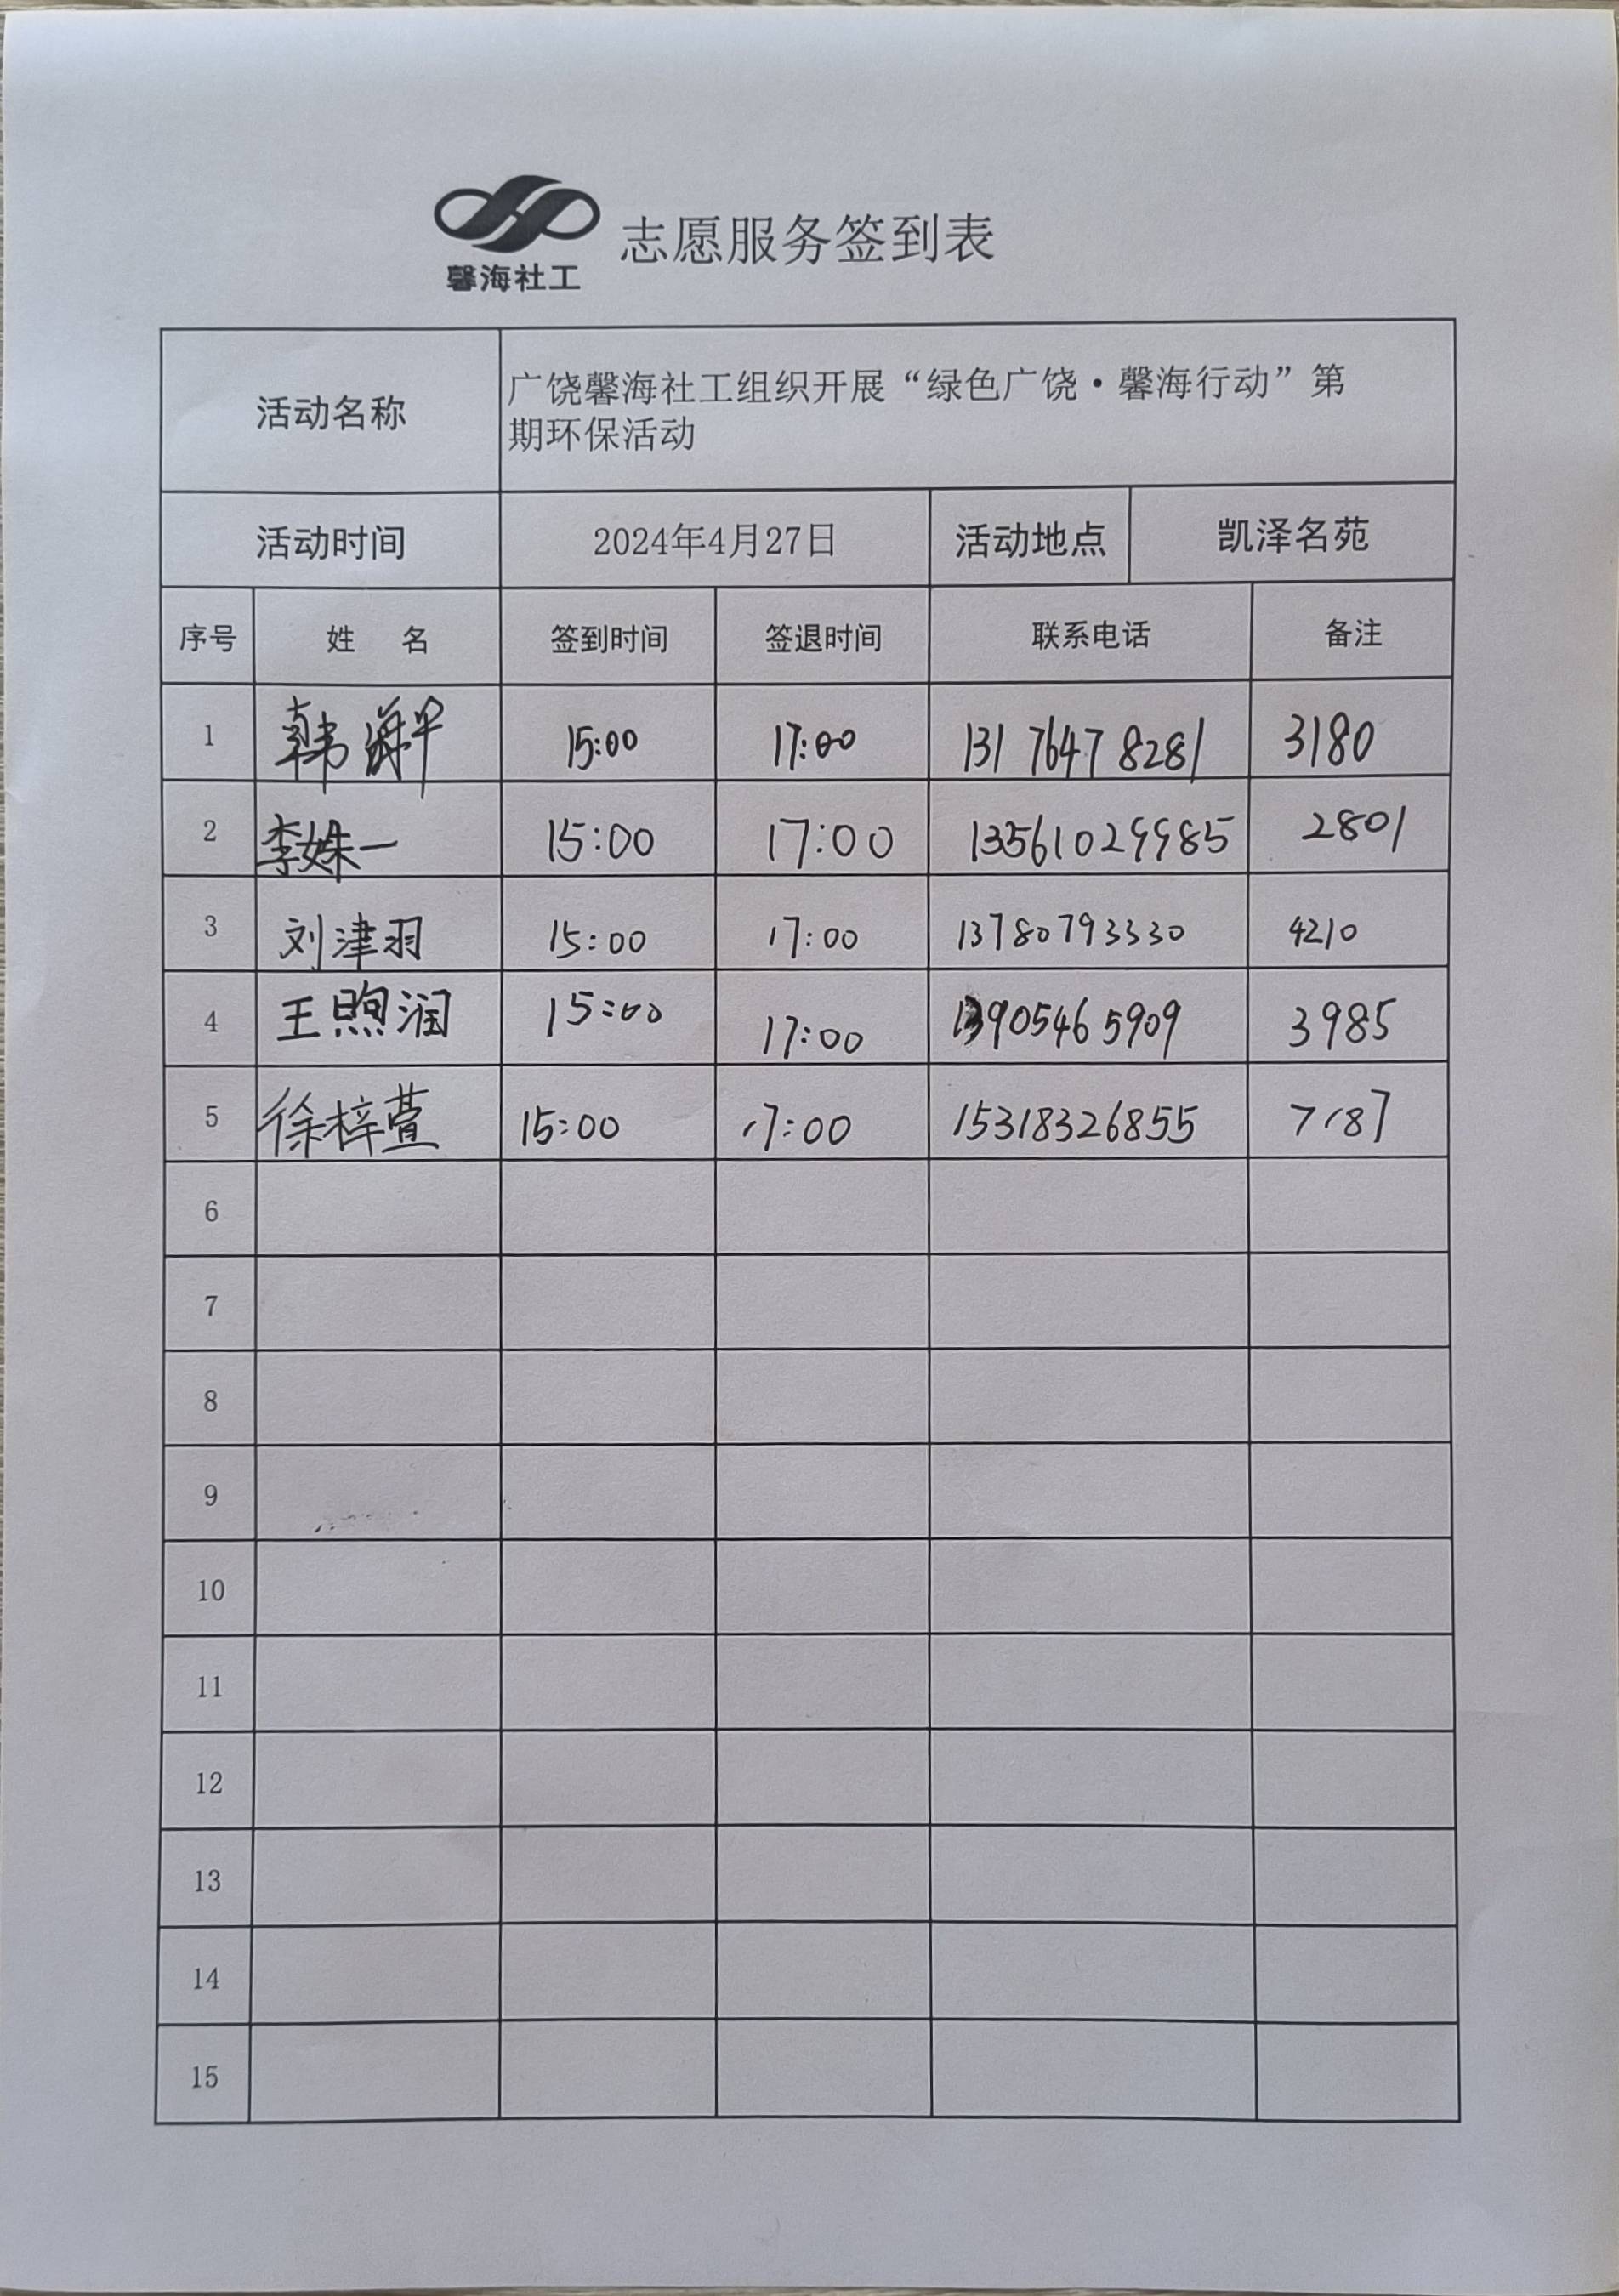 馨海社工
志愿服务签到表
活动名称
广饶馨海社工组织开展“绿色广饶·馨海行动”第
期环保活动
活动时间 2024年4月27日 活动地点 凯泽名苑
序号 姓 名 签到时间 签退时间 联系电话 备注
1 韩 15:00 17:00 131 7647 8281 3180
2 李姝一 15:00 17:00 13561029985 2801
3 刘津羽 15:00 17:00 13780793330 4210
4 王煦润 15:00 17:00 13905465909 3985
5 徐梓萱 15:00 17:00 15318326855 7187
6
7
8
9
10
11
12
13
14
15